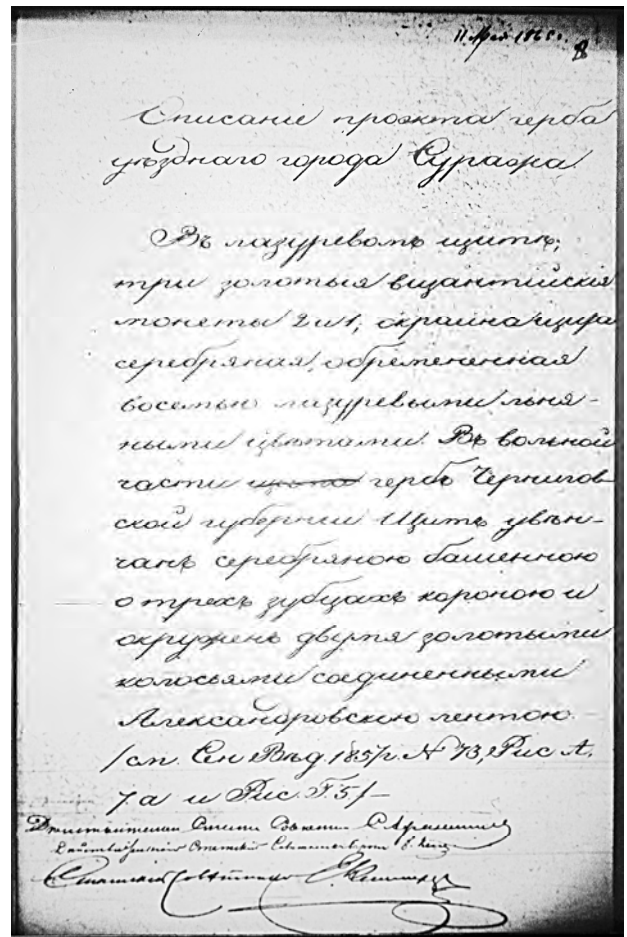 11 Мая 1865 г.
8
Описаніе проэкта герба
уѣзднаго города Суража
Въ лазуревомъ щитѣ,
три золотыя византійскія
монеты 2 и 1, окраина щита
серебряная, обремененная
восемью лазуревыми льня-
ными цвѣтами. Въ вольной
части щита гербъ Чернигов-
ской губерніи Щитъ увѣн-
чанъ серебряною башенною
о трехъ зубцахъ короною и
окруженъ двумя золотыми
колосьями соединенными
Александровскою лентою. –
/см. Сен Вѣд. 1857 г. № 73, Рис А.
7.а и Рис. Г. 5/–
Дѣйствительный Статскій Совѣтникъ
Дѣйствительный Статскій Совѣтникъ Баронъ Б. Кёне
Статскій Совѣтникъ